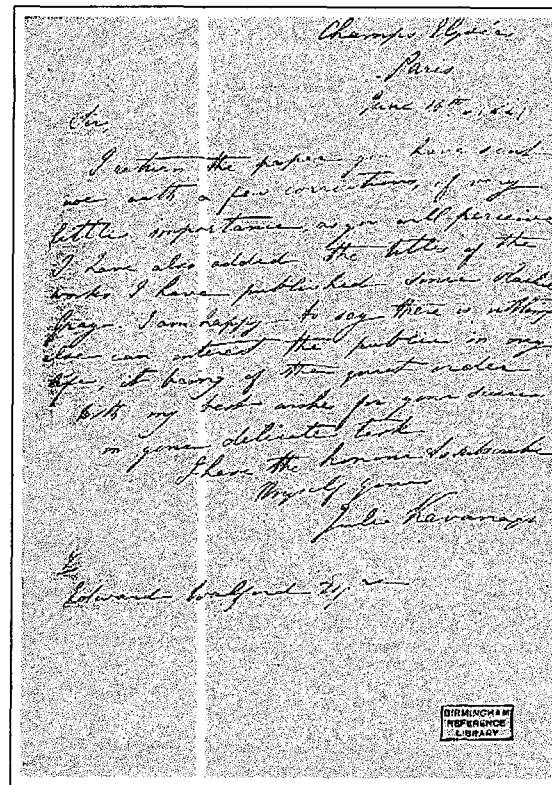 Champs Elysées
Paris
June 14th
Sir,
I return the paper you have sent
me with a few corrections, of very
little importance as you will perceive
I have also added the titles of the
works I have published since
I am happy to say there is nothing
else can interest the public in my
life, it being of the quiet order
With my best wishes for your success
in your delicate task
I have the honour to subscribe
Myself yours
Julia Kavanagh
Edward Walford Esqre
BIRMINGHAM
REFERENCE
LIBRARY